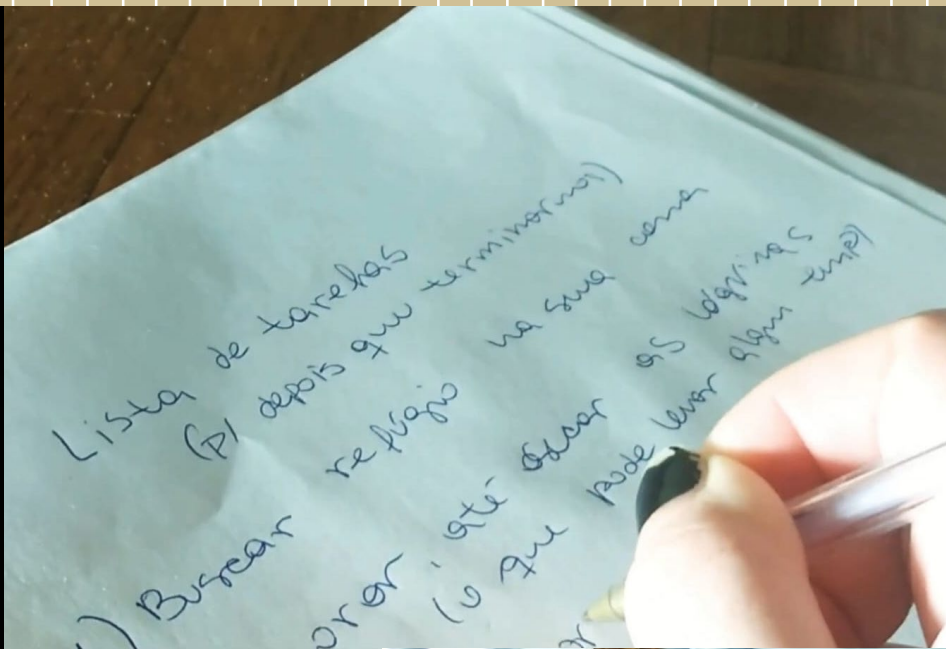 Lista de tarefas
(p/ depois que terminarmos)
1) Buscar refúgio na sua cama
orar até secar as lágrimas
(o que pode levar algum tempo)